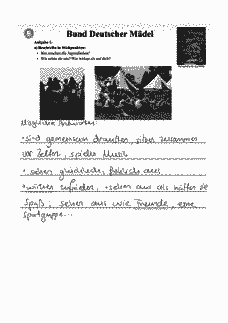 Bund Deutscher Mädel
Aufgabe 1:
a) Beschreibt in Stichpunkten:
• Was machen die Jugendlichen?
• Wie sehen sie aus? Wie wirken sie auf dich?
Mögliche Antworten:
• Sind gemeinsam draußen, sitzen zusammen
vor Zelten, spielen Musik
• sehen glücklich, aus
• wirken zufrieden, • sehen aus als hätten sie
Spaß, sehen aus wie Freunde, eine
Sportgruppe...